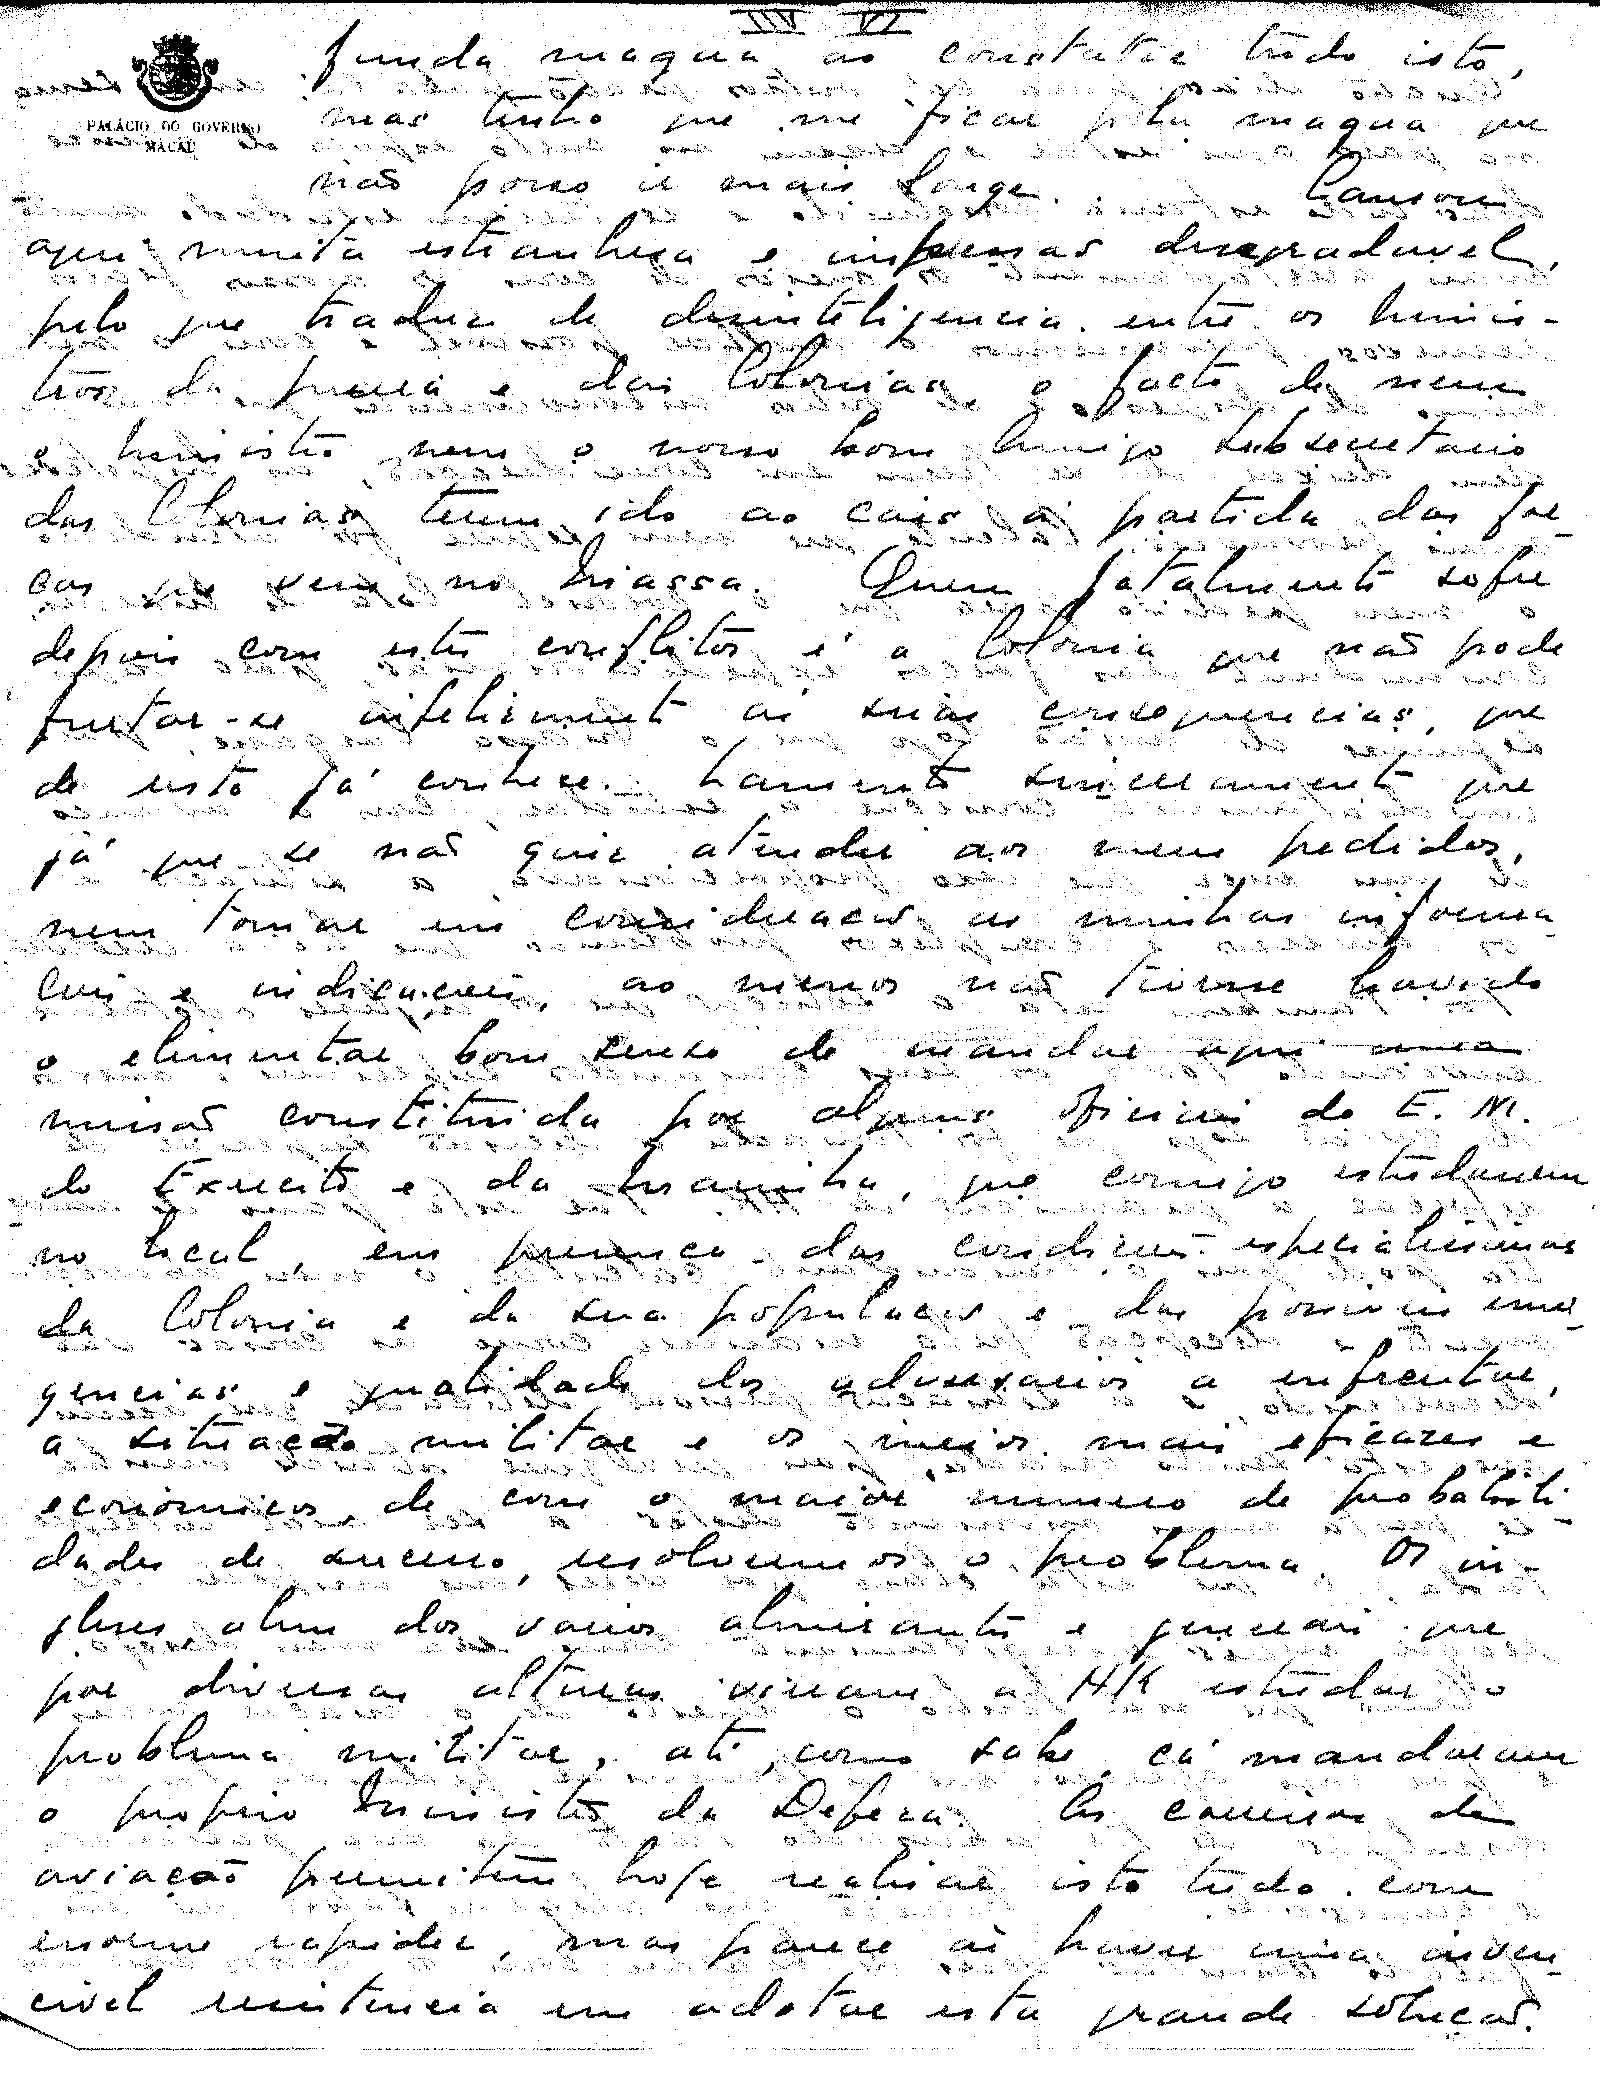 IIV VI
PALÁCIO DO GOVERNO
MACAU
funda magua ao constatar tudo isto,
mas tenho que me ficar pela magua que
não posso ir mais longe. Causou
aqui muita estranhesa e impressão desagradavel,
pelo que traduz de desinteligencia entre os Minis-
tros da guerra e das Colonias, o facto de nem
o Ministro nem o nosso bom Amigo Subsecretario
das Colonias terem ido ao cais á partida das for-
ças que vem no Niassa. Quem fatalmente sofre
depois com estes conflitos é a Colonia que não póde
furtar-se infelizmente ás suas consequencias, que
de resto já conhece. Lamento sinceramente que
já que se não quiz atender aos meus pedidos,
nem tomar em consideração as minhas informa
ções e indicações, ao menos não tivesse havido
o elementar bom senso de mandar aqui uma
missão constituida por alguns oficiais do E. M.
do Exercito e da Marinha, que comigo estudassem
no local, em presença das condições especialissimas
da Colonia e da sua população e das possiveis emer
gencias e qualidade dos adversarios a enfrentar,
a situação militar e os meios mais eficazes e
económicos de com o maior numero de probabili-
dades de sucesso, resolvermos o problema. Os in-
gleses, alem dos varios almirantes e generais que
por diversas alturas vieram a H/K estudar o
problema militar, até, como sabe, cá mandaram
o proprio Ministro da Defeza. As carreiras de
aviação permitem hoje realisar isto tudo com
enorme rapidez, mas parece aí haver uma inven-
civel resistencia em adotar esta grande solução.